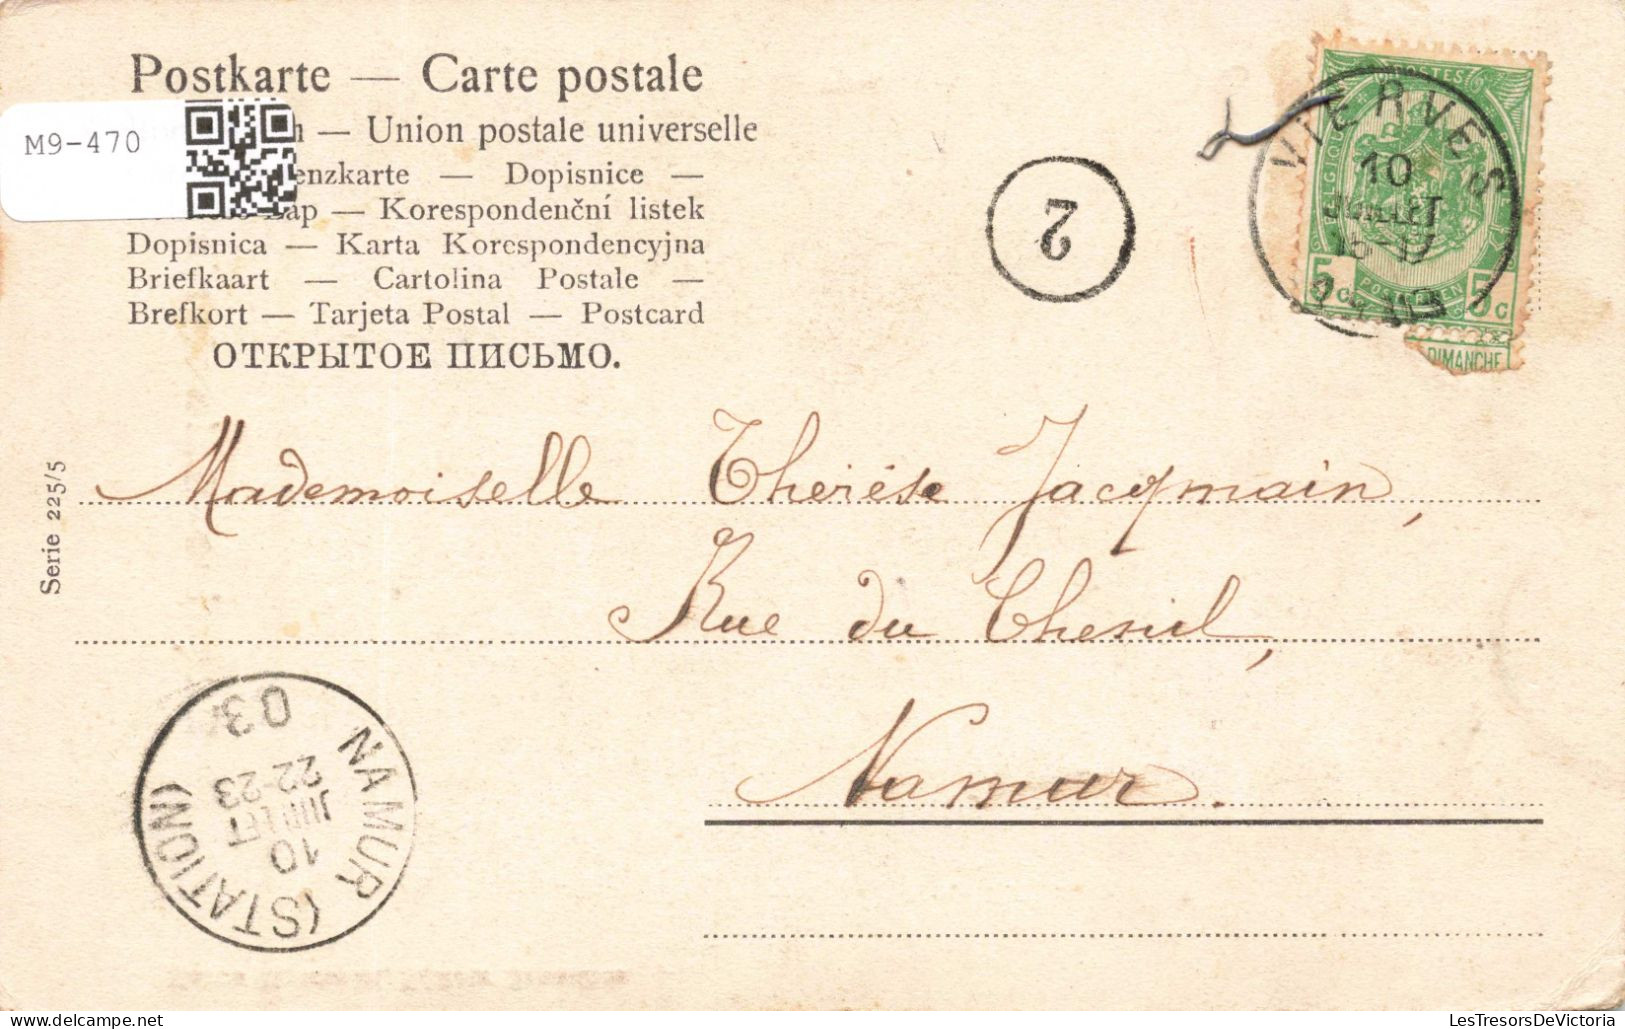 Postkarte — Carte postale
M9-470
— Union postale universelle
enzkarte — Dopisnice —
— Korespondenční listek
Dopisnica — Karta Korespondencyjna
Briefkaart — Cartolina Postale —
Brefkort — Tarjeta Postal — Postcard
ОТКРЫТОЕ ПИСЬМО.
2
VIERVES
10
JUILLET
POSTES
BELGIQUE
5c
5c
DIMANCHE
Serie 225/5
Mademoiselle Thérèse Jacqmain,
Rue du Chenil,
Namur.
NAMUR (STATION)
10
JUILLET
22-23
03
LesTresorsDeVictoria